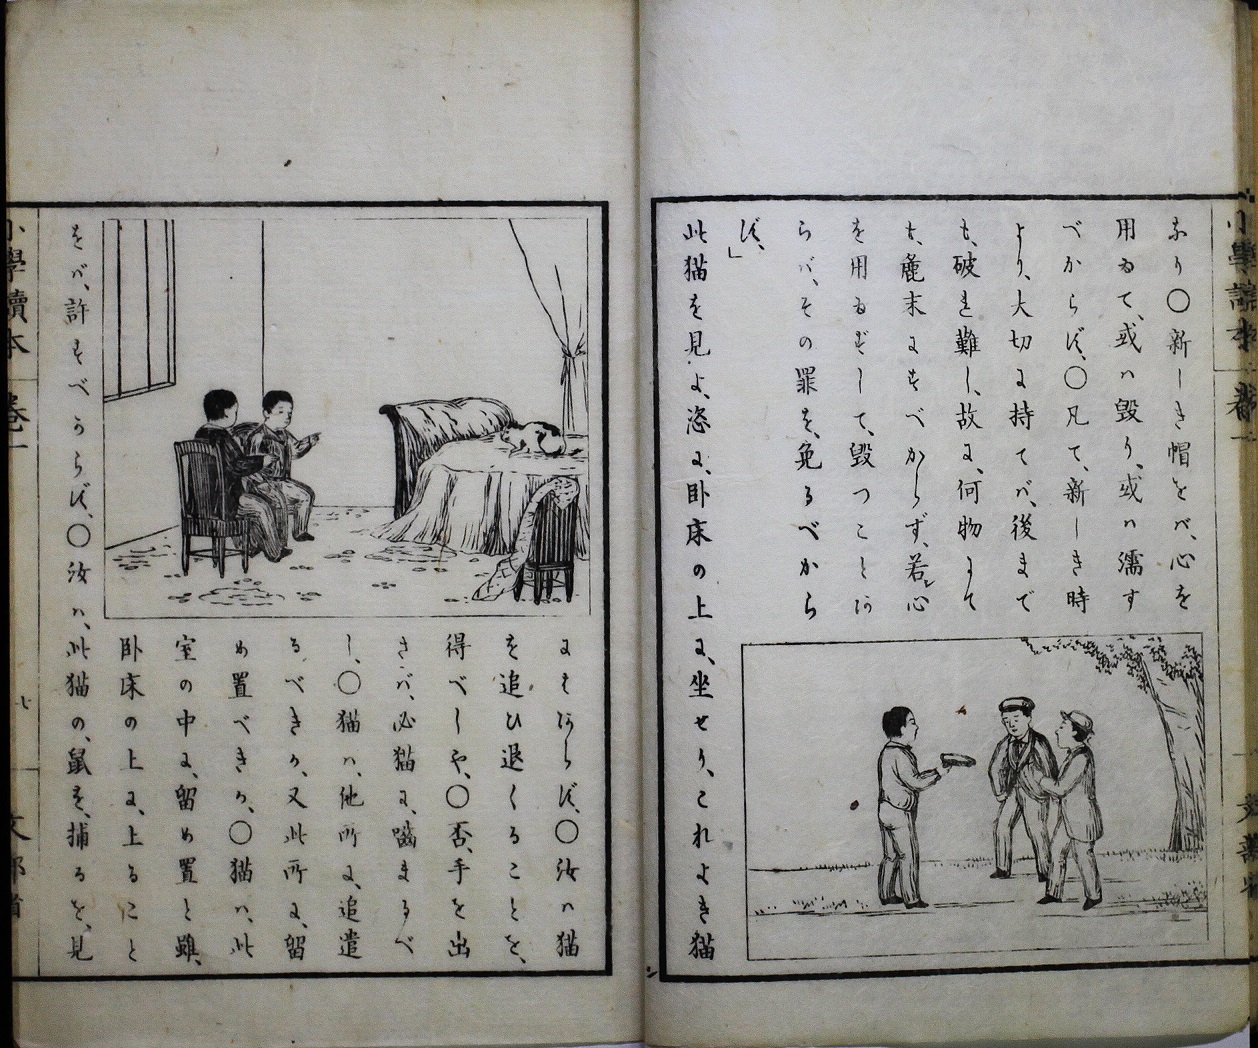 小學讀本 卷一
なり〇新しき帽をバ、心を
用ゐて、或ハ毀り、或ハ濡す
べからず、〇凡て、新しき時
より、大切に持てバ、後まで
も、破れ難し、故に、何物にて
も、麁末にすべからず、若し心
を用ゐずして、毀つことあ
らバ、その罪を、免るべから
ず、」
此猫を見よ、恣に、卧床の上に、坐せり、これよき猫
にはあらず、〇汝ハ猫
を追ひ退くることを、
得べしや、〇否、手を出
さバ、必猫に、噛まるべ
し、〇猫ハ、他所に、追遣
るべきか、又此所に、留
め置べきか、〇猫ハ、此
室の中に、留め置と雖、
卧床の上に、上ること
をバ、許すべからず、〇汝ハ、此猫の、鼠を、捕るを、見
小學讀本 卷一 文部省